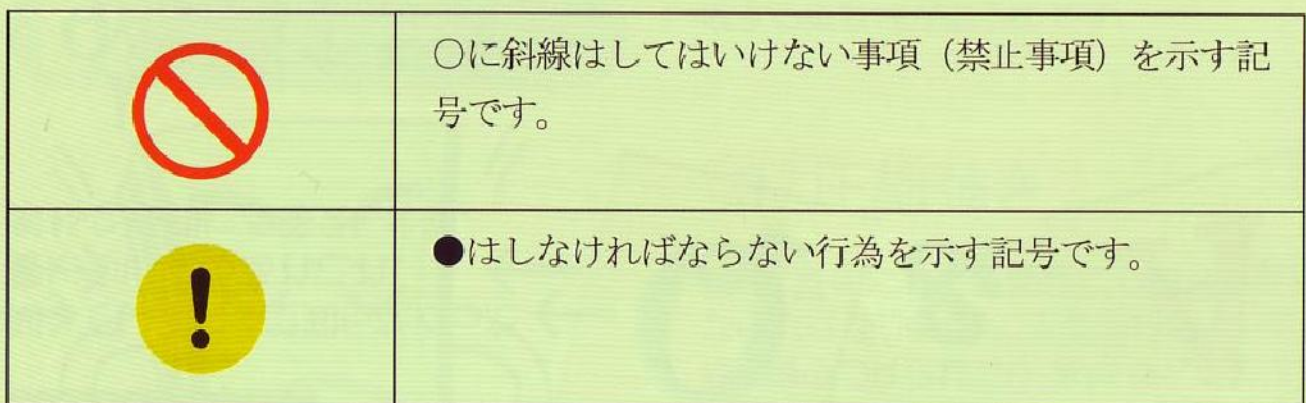 ○に斜線はしてはいけない事項（禁止事項）を示す記
号です。
●はしなければならない行為を示す記号です。